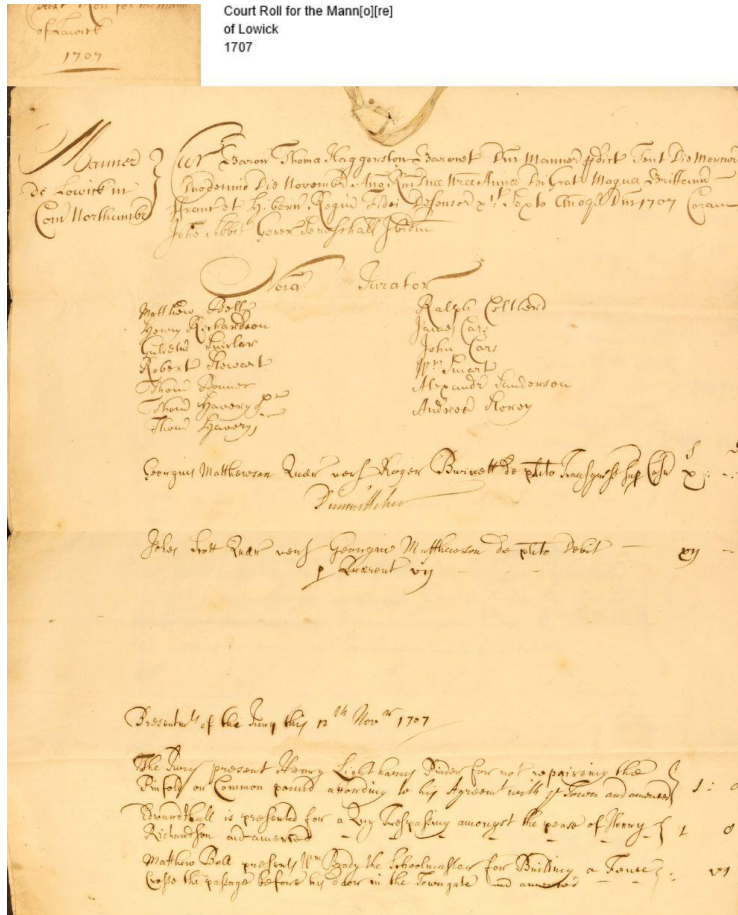 Court Roll for the Mann[o][re]
of Lowick
1707
Court Roll for the Mann
of Lowick
1707
Manner
de Lowick in
Com Northumbr
Cur Baron Thoma Haggerston Baronet Dni Manner pdict Tent Die
Duodecimo Die Novembr Anno Rni Dnae Annae Dei Grat Magnae Brittann
Franc et Hibern Regin Fidei Defensor &c Sexto Annoq Dni 1707 Coram
Gener Senschall Ibidm
Noia Jurator
Matthew Bell
Henry Richardson
Robert Stewart
Thom Bonner
Thom Havery
Thom Havery
Ralph
James Cars
John Cars
Wm Smart
Alexandr Sanderson
Andrew Storey
Georgius Matthewson Quær vers Roger de plito Transgress sup Cas x
Johes Scott Quær vers Georgiu Matthewson de plito Debit xij
p Quærent vij
Presentmts of the Jury this 12th Novr 1707
The Jury present Henry Lighthams Pinder for not repaireing the
Pinfold or Common pound according to his Agreemt with ye Town and amerced 1:
Edward Hall is presented for a Trespassing amongst the pease of Henry
Richardson and amerced 1 0
Matthew Bell presents Wm Brady the Schoolmaster for Building a Fence
Crosse the passage before his door in the Towngate and amerced vj